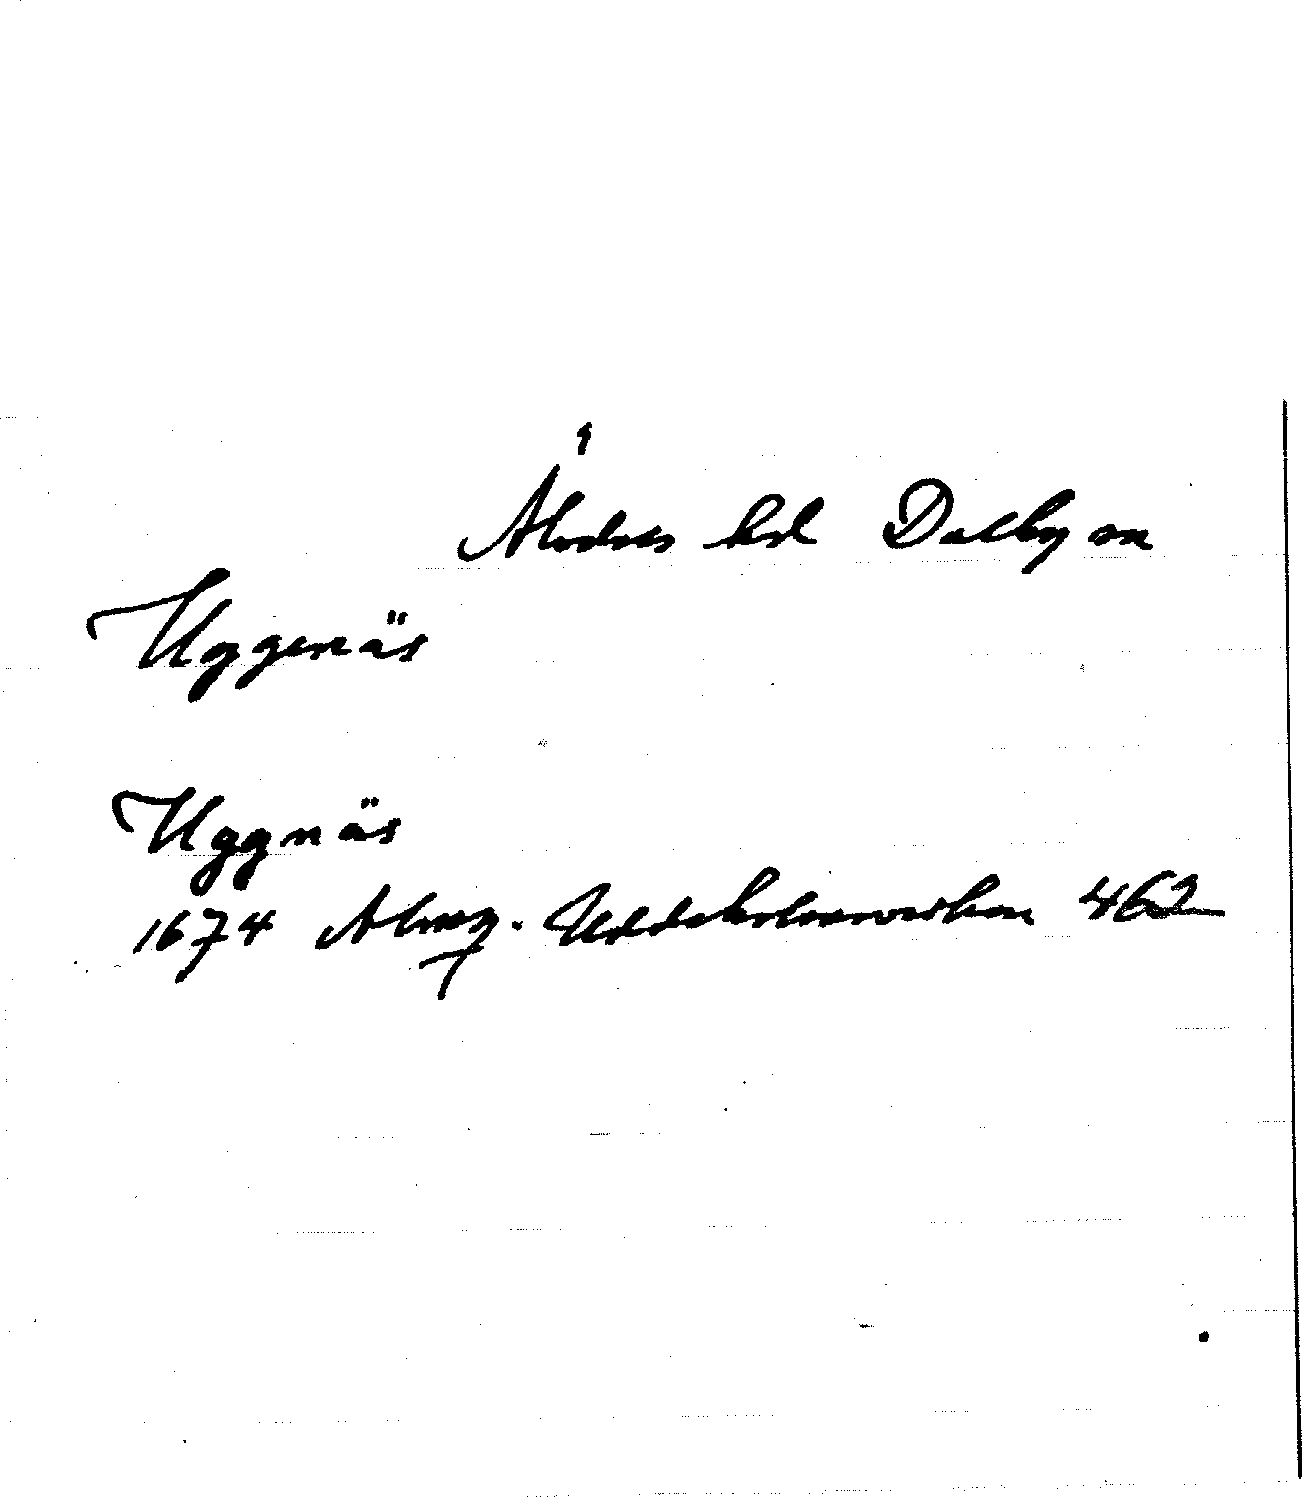 Älvdals hd Dalby sn
Uggenäs
Uggnäs
1674 Almqv. Uddeholmsverken 462